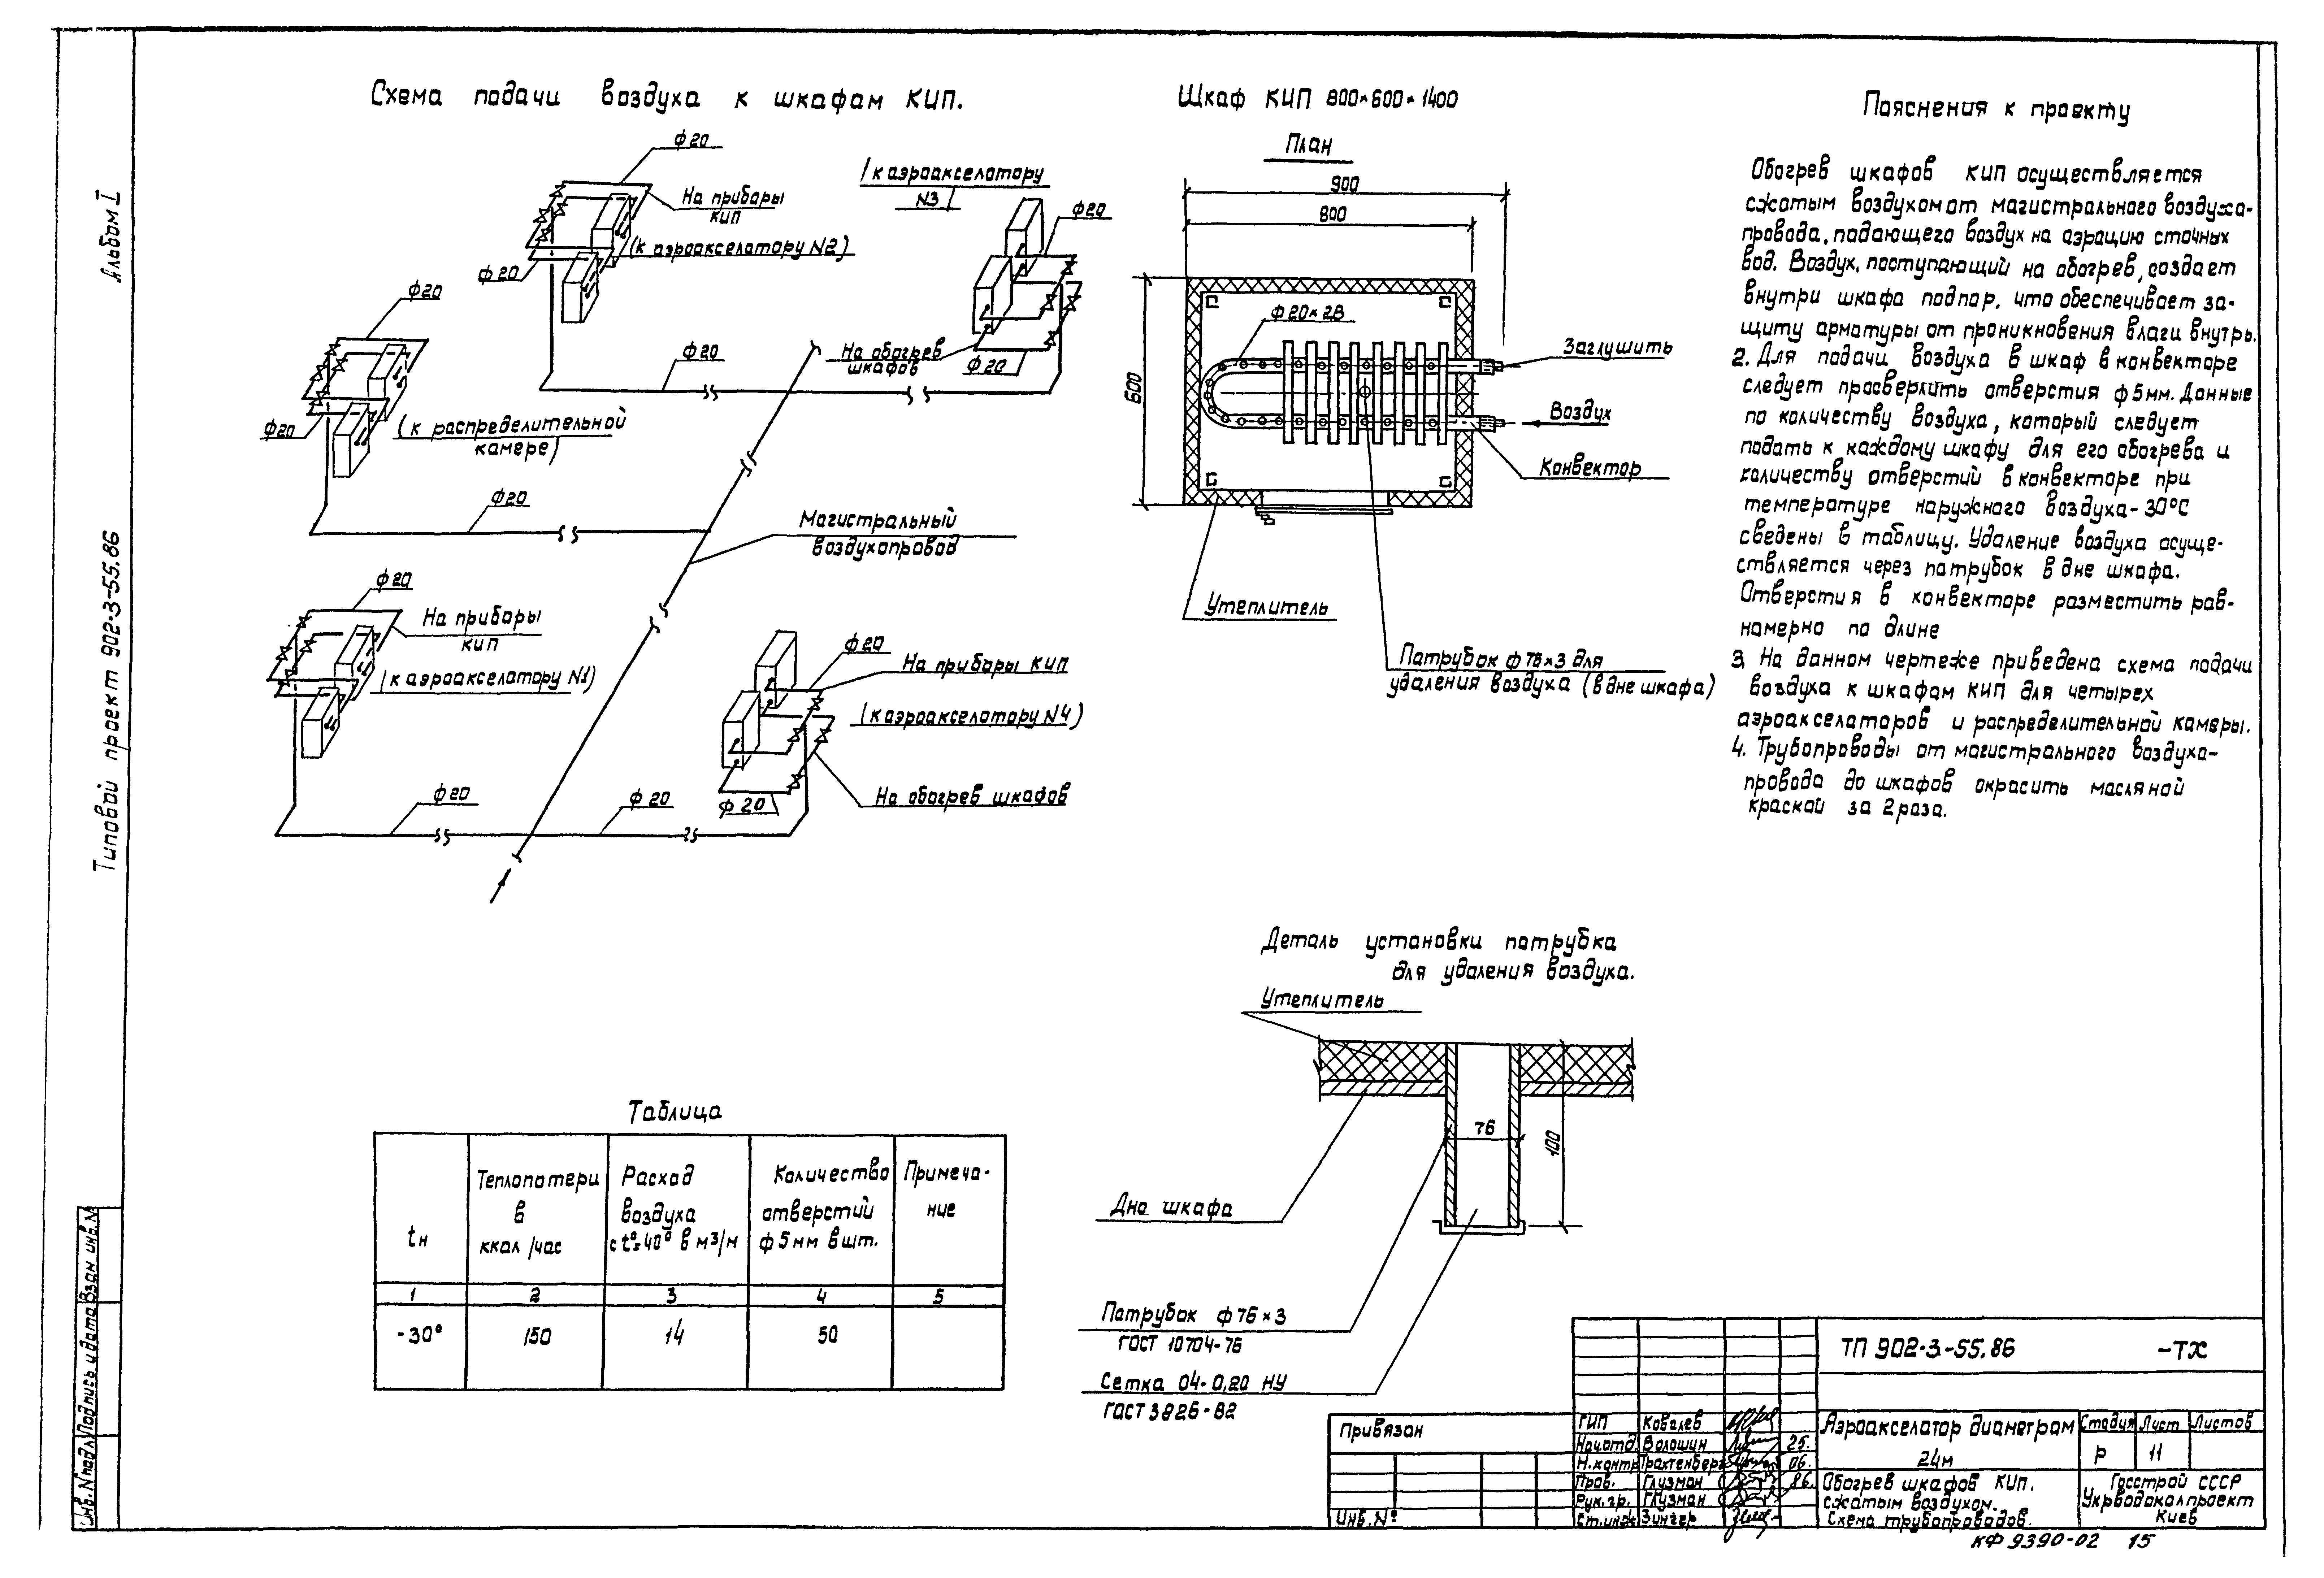 Альбом I
Типовой проект 902-3-55.86
Взам инв.№
Подпись и дата
Инв.N подл.
Схема подачи воздуха к шкафам КИП.
ф20
На приборы
КИП
(к аэроакселатору N2)
ф20
(к аэроакселатору
N3)
ф20
На обогрев
шкафов
ф20
ф20
ф20
ф20
(к распределительной
камере)
ф20
Магистральный
воздухопровод
ф20
На приборы
КИП
(к аэроакселатору N1)
ф20
На приборы КИП
(к аэроакселатору N4)
На обогрев шкафов
ф20
ф20
ф20
Шкаф КИП 800×600×1400
План
900
800
600
ф20×2В
Заглушить
Воздух
Конвектор
Утеплитель
Патрубок ф76×3 для
удаления воздуха (в дне шкафа)
Пояснения к проекту
Обогрев шкафов КИП осуществляется
сжатым воздухом от магистрального воздухо-
провода, подающего воздух на аэрацию сточных
вод. Воздух, поступающий на обогрев, создает
внутри шкафа подпор, что обеспечивает за-
щиту арматуры от проникновения влаги внутрь.
2. Для подачи воздуха в шкаф в конвекторе
следует просверлить отверстия ф5мм. Данные
по количеству воздуха, который следует
подать к каждому шкафу для его обогрева и
количеству отверстий в конвекторе при
температуре наружного воздуха -30°С
сведены в таблицу. Удаление воздуха осуще-
ствляется через патрубок в дне шкафа.
Отверстия в конвекторе разместить рав-
номерно по длине
3. На данном чертеже приведена схема подачи
воздуха к шкафам КИП для четырех
аэроакселаторов и распределительной камеры.
4. Трубопроводы от магистрального воздухо-
провода до шкафов окрасить масляной
краской за 2 раза.
Деталь установки патрубка
для удаления воздуха.
Утеплитель
76
100
Дно шкафа
Патрубок ф76×3
ГОСТ 10704-76
Сетка 04-0,20 НУ
ГОСТ 3826-82
Таблица
tн
Теплопотери в ккал/час
Расход воздуха с t°=40° в м³/м
Количество отверстий ф5мм в шт.
Примеча-ние
1 2 3 4 5
-30° 150 14 50
Привязан
Инв.№
ГИП Ковалев
Нач.отд. Волошин 25.
Н.контр Трахтенберг 06.
Пров. Глузман 86.
Рук.гр. Глузман
Ст.инж Зингер
ТП 902-3-55.86 -ТХ
Аэроакселатор диаметром
24м
Стадия Лист Листов
Р 11
Обогрев шкафов КИП.
сжатым воздухом.
Схема трубопроводов.
Госстрой СССР
Укрводоканалпроект
Киев
КФ 9390-02 15